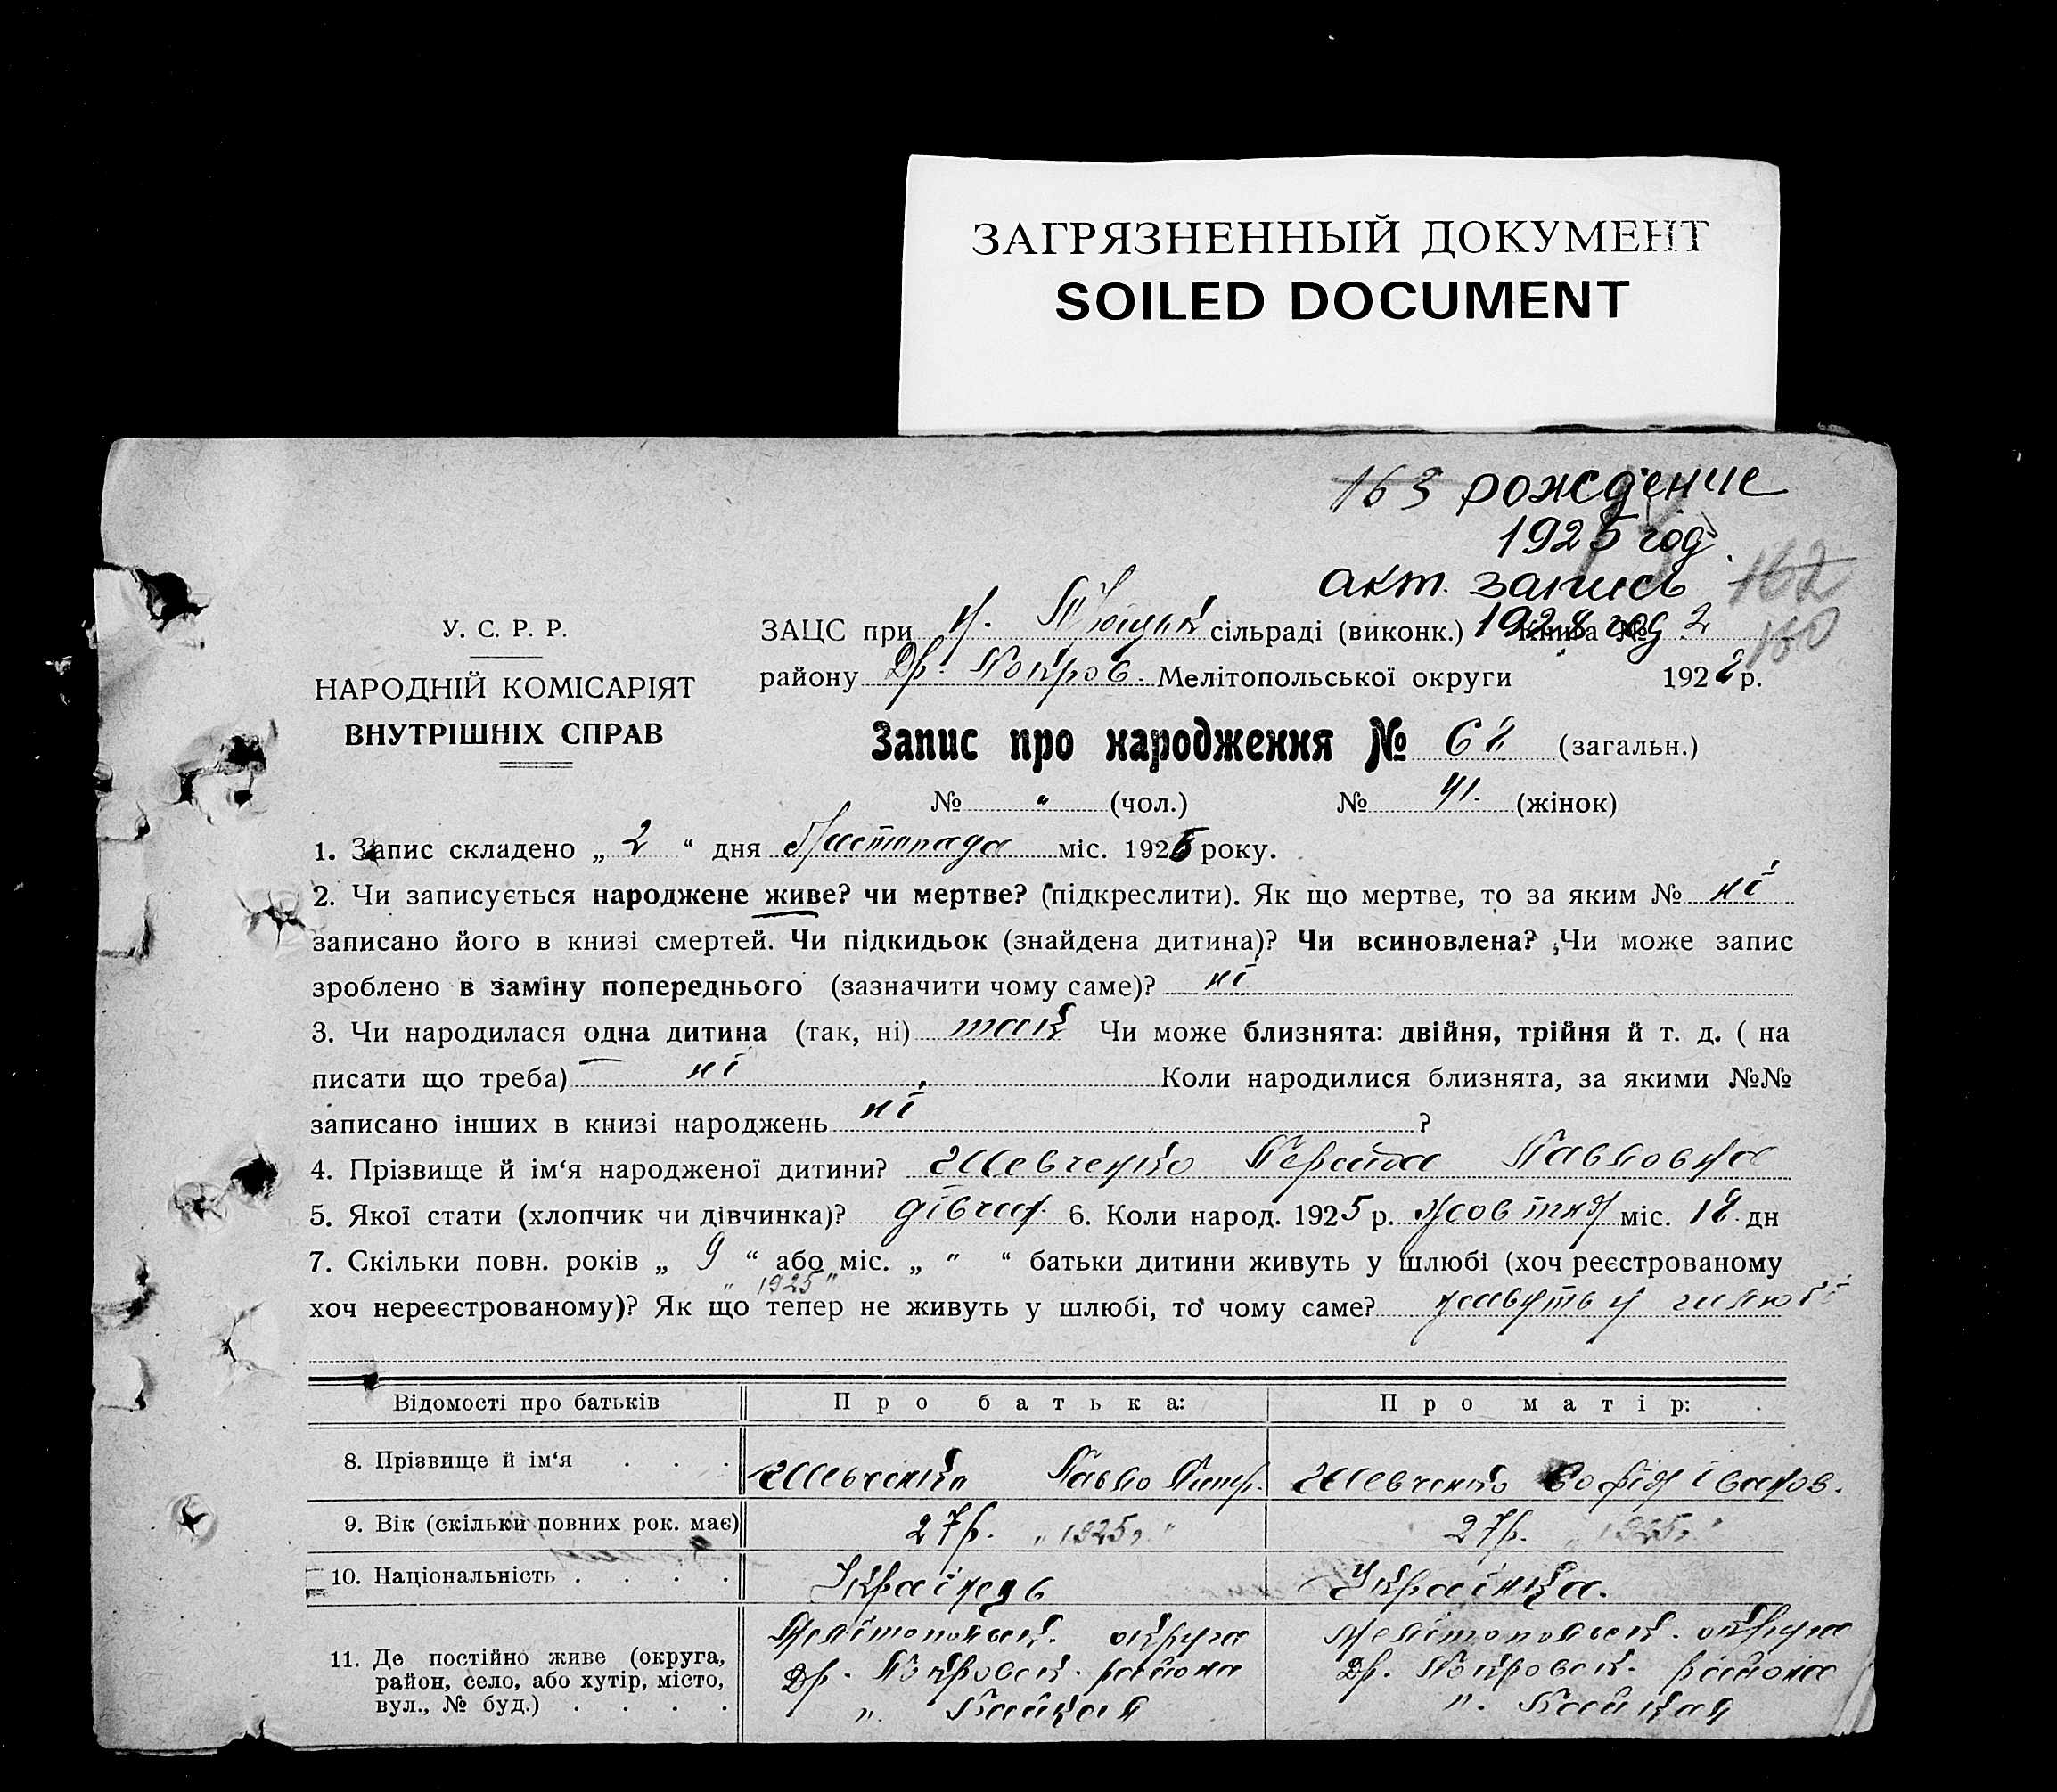 ЗАГРЯЗНЕННЫЙ ДОКУМЕНТ
SOILED DOCUMENT
163 рождение
1925 год.
акт. запись 162
1928 год 150
У. С. Р. Р.
НАРОДНІЙ КОМІСАРІЯТ
ВНУТРІШНІХ СПРАВ
ЗАЦС при сільраді (виконк.) Книга № 2
району Др. Покров. Мелітопольської округи 1928 р.
Запис про народження № 68 (загальн.)
№ " (чол.) № 41. (жінок)
1. Запис складено „ 2 “ дня Листопада міс. 1925 року.
2. Чи записується народжене живе? чи мертве? (підкреслити). Як що мертве, то за яким № ні
записано його в книзі смертей. Чи підкидьок (знайдена дитина)? Чи всиновлена? Чи може запис
зроблено в заміну попереднього (зазначити чому саме)? ні
3. Чи народилася одна дитина (так, ні) так Чи може близнята: двійня, трійня й т. д. ( на
писати що треба) ні Коли народилися близнята, за якими №№
записано інших в книзі народжень ні ?
4. Прізвище й ім‘я народженої дитини? Шевченко Павловна
5. Якої стати (хлопчик чи дівчинка)? дівчин. 6. Коли народ. 1925 р. жовтня міс. 18 дн
7. Скільки повн. років „ 9 “ або міс. „ " “ батьки дитини живуть у шлюбі (хоч реєстрованому
" 1925 "
хоч нереєстрованому)? Як що тепер не живуть у шлюбі, то чому саме? живуть у шлюбі
Відомості про батьків Про батька: Про матір:
8. Прізвище й ім‘я . . . Шевченко Павло Шевченко Софія Іванов.
9. Вік (скільки повних рок. має) 27р. „ 1925р " 27р. „ 1925р "
10. Національність . . . . Українець Українка.
11. Де постійно живе (округа, Мелітопольськ. округа Мелітопольськ. округа
район, село, або хутір, місто, Др. Покровськ. района Др. Покровськ. района
вул., № буд.) . . . . ". ".